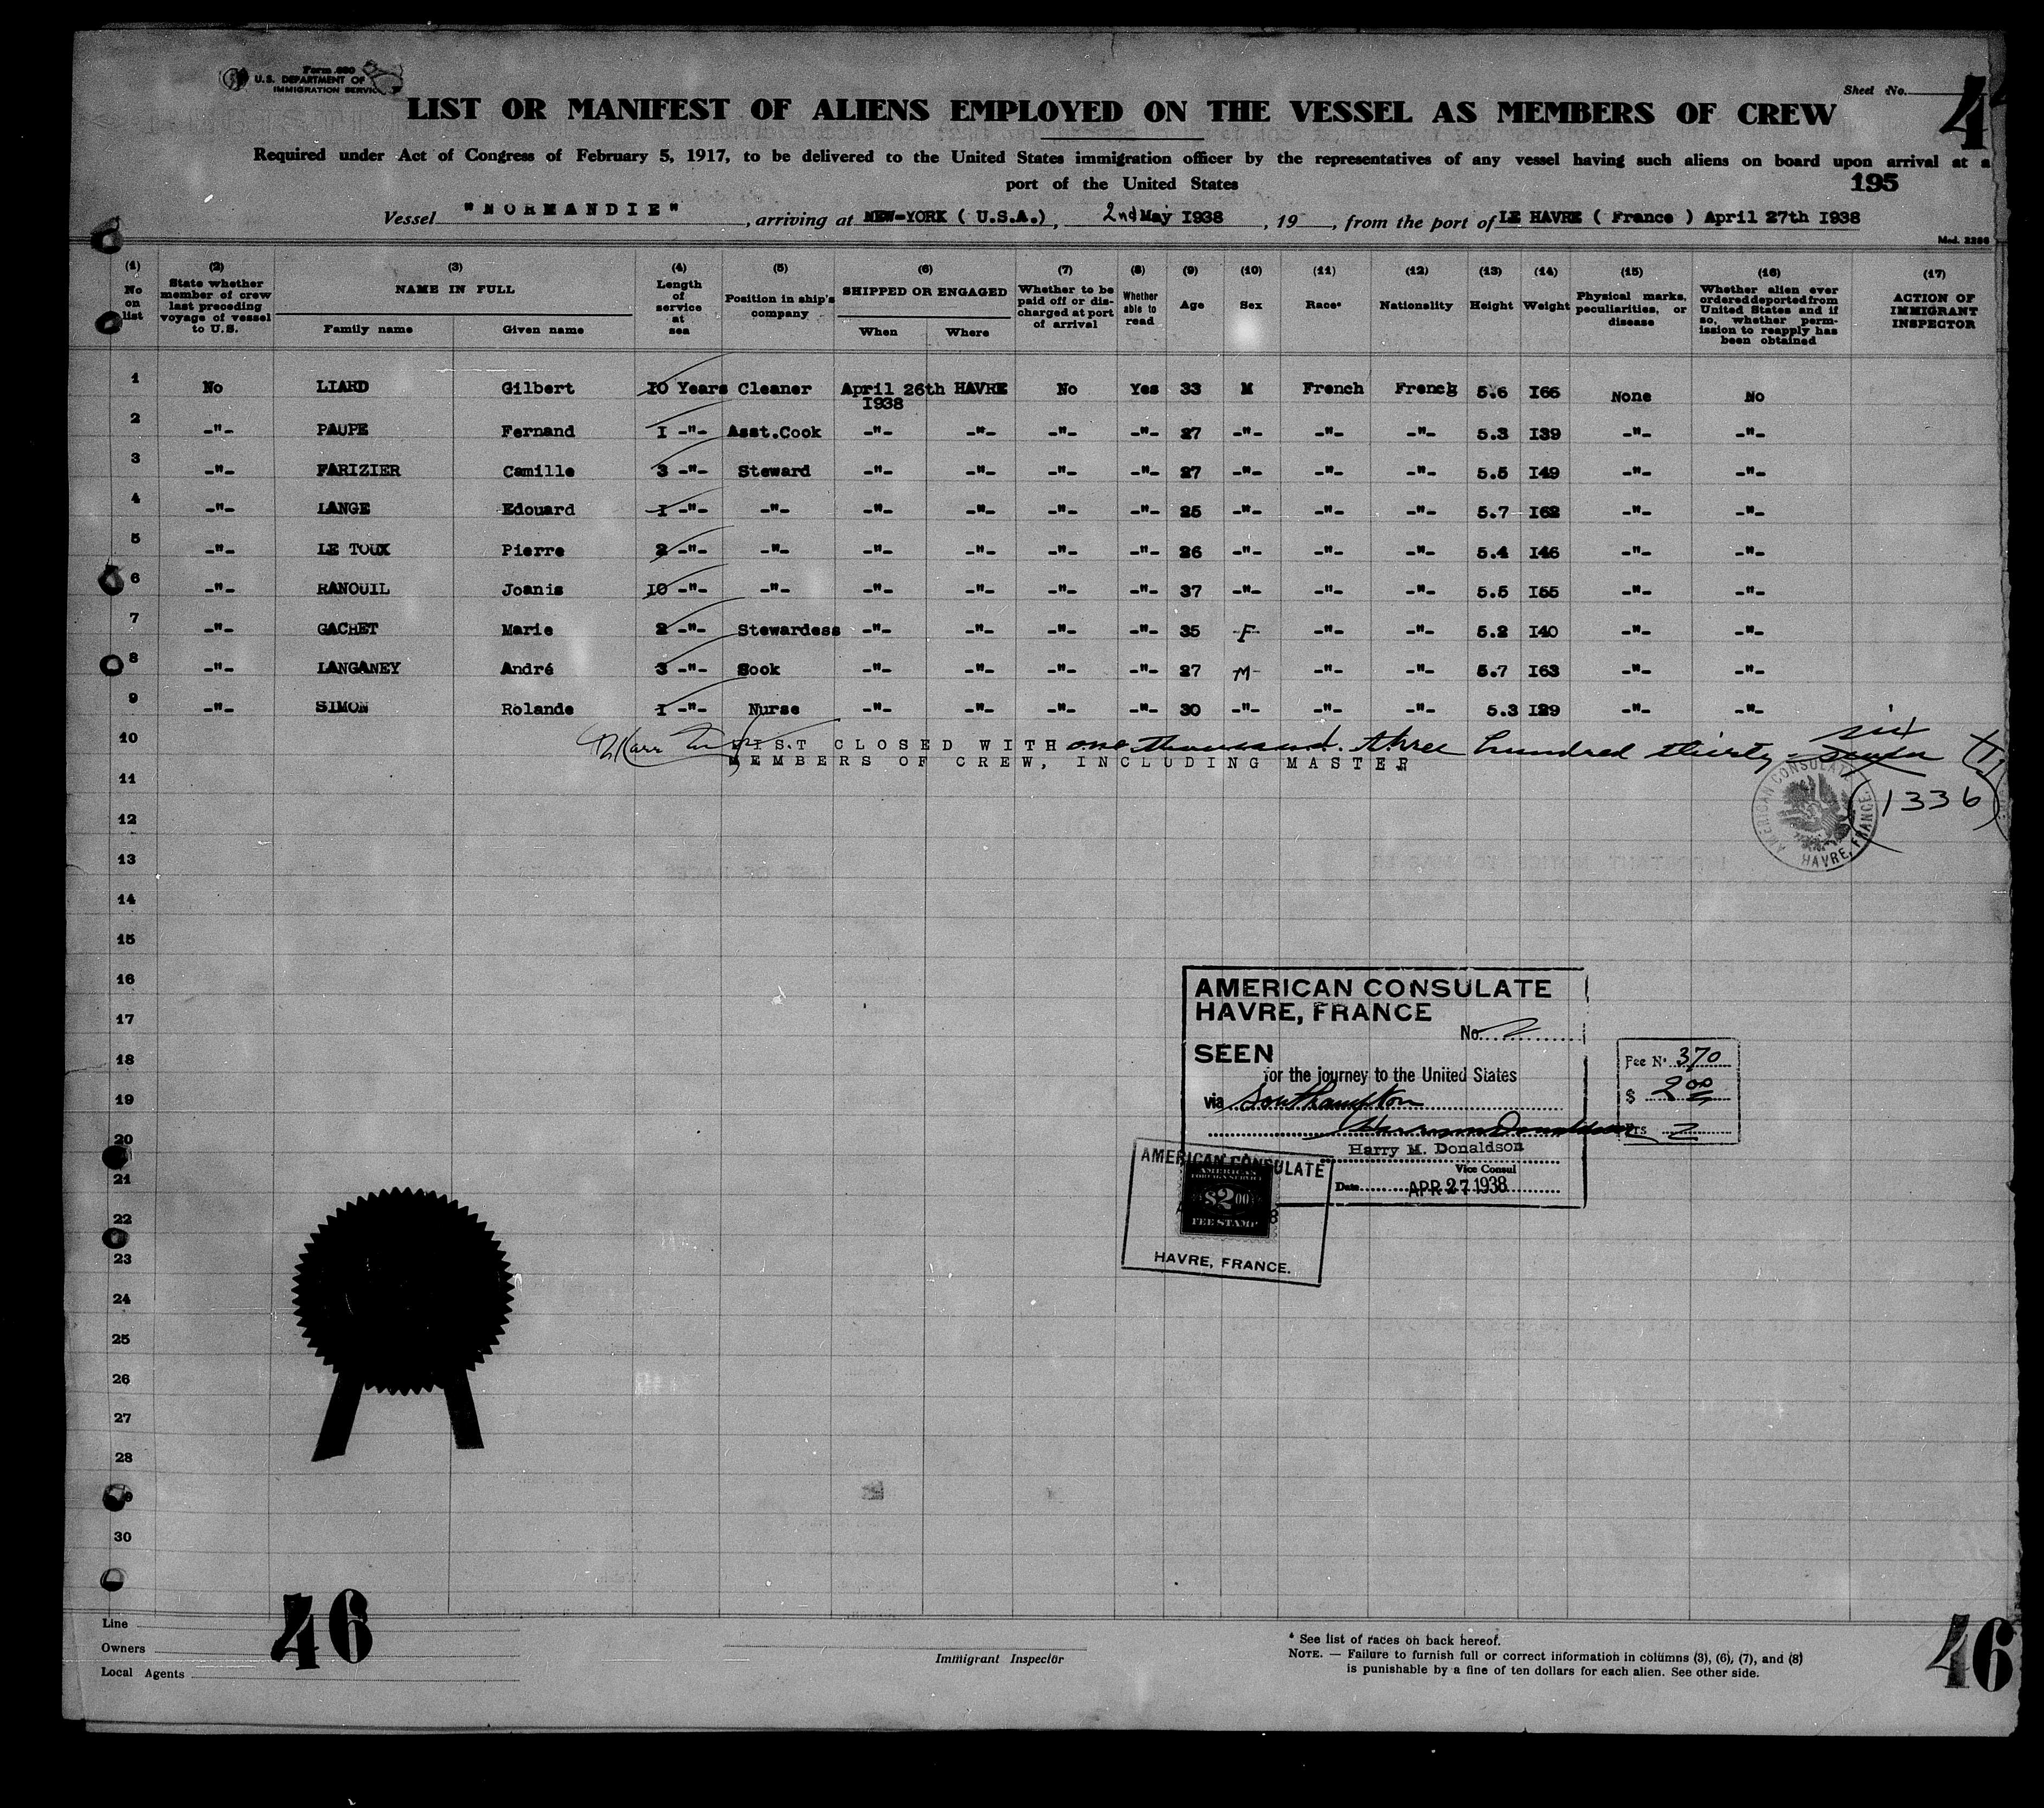 Form 680
U.S. DEPARTMENT OF
IMMIGRATION SERVICE
Sheet No. 4
LIST OR MANIFEST OF ALIENS EMPLOYED ON THE VESSEL AS MEMBERS OF CREW
Required under Act of Congress of February 5, 1917, to be delivered to the United States immigration officer by the representatives of any vessel having such aliens on board upon arrival at a
port of the United States
195
Vessel "NORMANDIE", arriving at NEW-YORK ( U.S.A.), 2nd May I938, 19 , from the port of LE HAVRE ( France ) April 27th I938
Mod. 2286
(1) No on list (2) State whether member of crew last preceding voyage of vessel to U.S. (3) NAME IN FULL Family name Given name (4) Length of service at sea (5) Position in ship's company (6) SHIPPED OR ENGAGED When Where (7) Whether to be paid off or discharged at port of arrival (8) Whether able to read (9) Age (10) Sex (11) Race* (12) Nationality (13) Height (14) Weight (15) Physical marks, peculiarities, or disease (16) Whether alien ever ordered deported from United States and if so, whether permission to reapply has been obtained (17) ACTION OF IMMIGRANT INSPECTOR
1 No LIARD Gilbert I0 Years Cleaner April 26th I938 HAVRE No Yes 33 M French French 5.6 I66 None No
2 -"- PAUPE Fernand I -"- Asst.Cook -"- -"- -"- -"- 27 -"- -"- -"- 5.3 I39 -"- -"-
3 -"- FARIZIER Camille 3 -"- Steward -"- -"- -"- -"- 27 -"- -"- -"- 5.5 I49 -"- -"-
4 -"- LANGE Edouard I -"- -"- -"- -"- -"- -"- 25 -"- -"- -"- 5.7 I62 -"- -"-
5 -"- LE TOUX Pierre 2 -"- -"- -"- -"- -"- -"- 26 -"- -"- -"- 5.4 I46 -"- -"-
6 -"- RANOUIL Joanis I0 -"- -"- -"- -"- -"- -"- 37 -"- -"- -"- 5.5 I55 -"- -"-
7 -"- GACHET Marie 2 -"- Stewardess -"- -"- -"- -"- 35 F -"- -"- 5.2 I40 -"- -"-
8 -"- LANGANEY André 3 -"- Cook -"- -"- -"- -"- 27 M -"- -"- 5.7 I63 -"- -"-
9 -"- SIMON Rolande I -"- Nurse -"- -"- -"- -"- 30 -"- -"- -"- 5.3 I29 -"- -"-
six
10 LIST CLOSED WITH one thousand three hundred thirty seven
MEMBERS OF CREW, INCLUDING MASTER
(1336)
AMERICAN CONSULATE HAVRE, FRANCE.
11
12
13
14
15
16
17
18
19
20
21
22
23
24
25
26
27
28
30
AMERICAN CONSULATE
HAVRE, FRANCE
No. 2
SEEN
for the journey to the United States
via Southampton
Harry M. Donaldson
Harry M. Donaldson
Vice Consul
Date APR 27 1938
Fee No. 370
$ 2.00
Frs 2
AMERICAN CONSULATE
AMERICAN
FOREIGN SERVICE
$2.00
FEE STAMP
HAVRE, FRANCE.
46
Line
Owners
Local Agents
Immigrant Inspector
* See list of races on back hereof.
NOTE. — Failure to furnish full or correct information in columns (3), (6), (7), and (8)
is punishable by a fine of ten dollars for each alien. See other side.
46